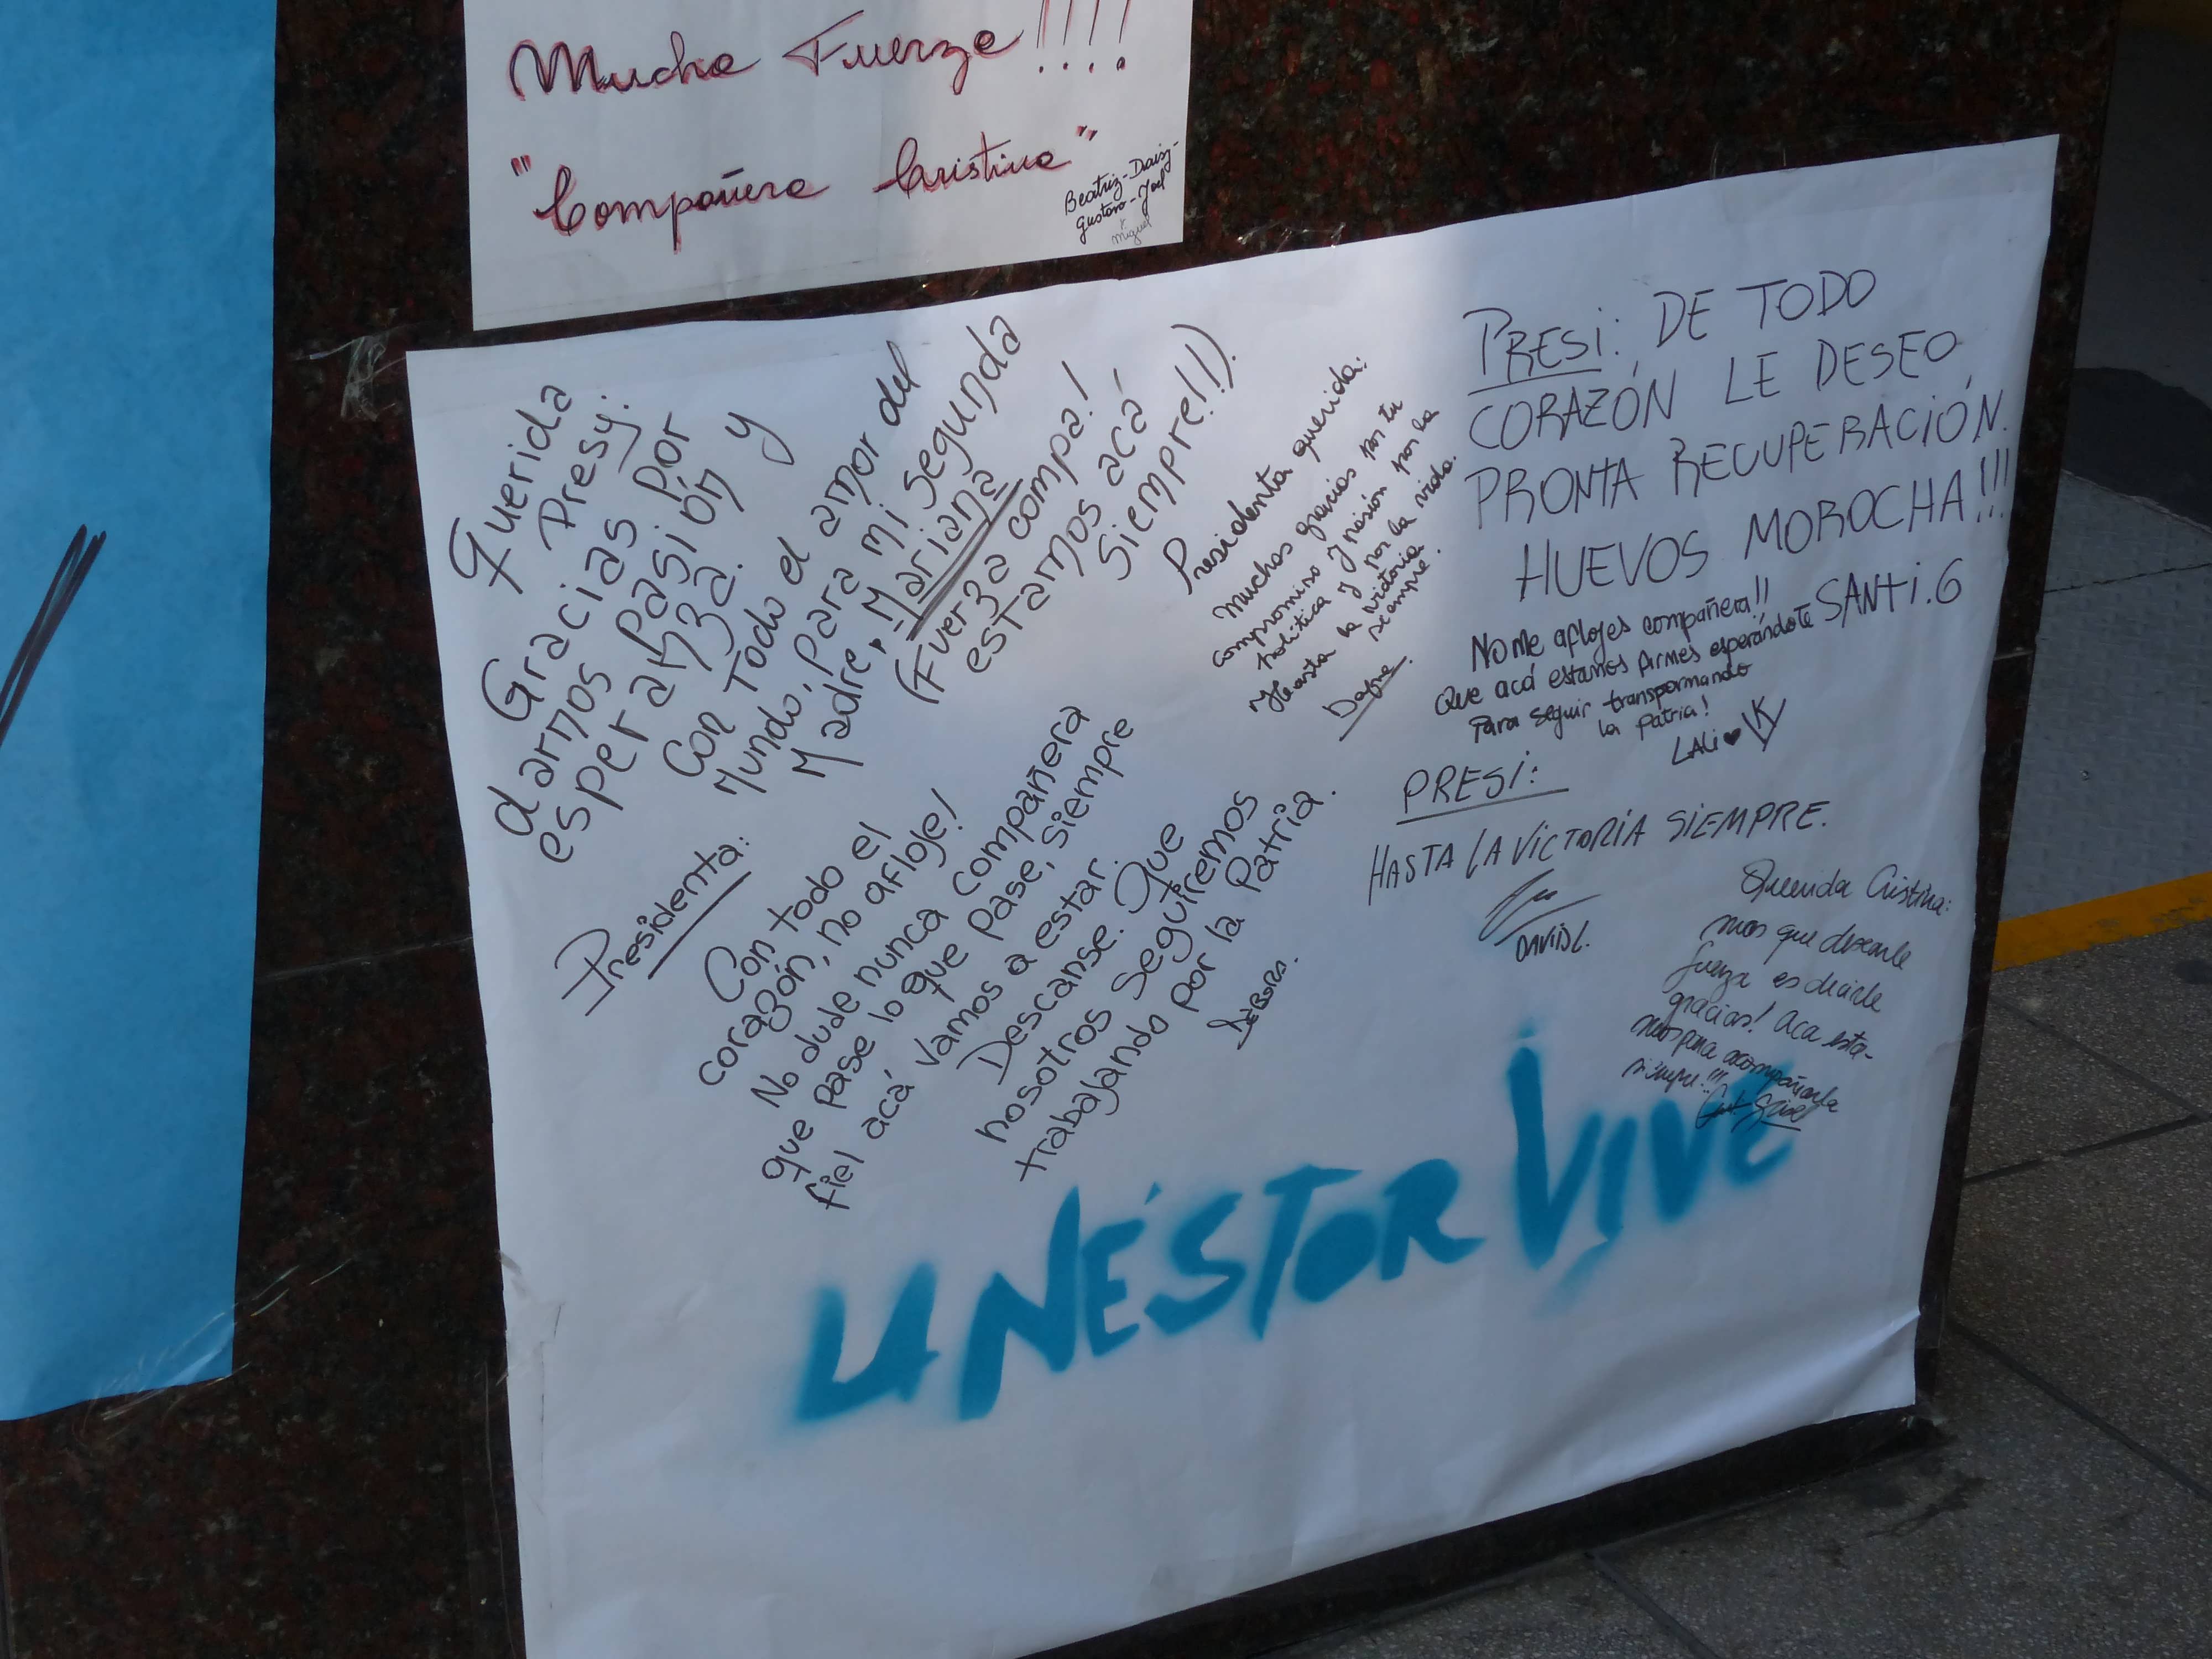 Mucha Fuerza!!!!
"Compañera Cristina"
Beatriz-Daisy-
Gustavo-Joel
y
Miguel
Querida
Presy:
Gracias por
darnos Pasión y
esperanza.
Con Todo el amor del
Mundo, Para mi segunda
Madre, Mariana
(Fuerza compa!
estamos acá
siempre!!).
Presidenta querida:
Muchas gracias por tu
compromiso y pasión por la
politica y por la vida.
Hasta la victoria
siempre.
Dafne.
PRESI: DE TODO
CORAZÓN LE DESEO
PRONTA RECUPERACIÓN.
HUEVOS MOROCHA!!!
SANTI.G
No me aflojes compañera!!
Que acá estamos firmes esperándote
Para seguir transformando
la Patria!
LALi ♥ K
Presidenta:
Con todo el
corazón, no afloje!
No dude nunca compañera
que pase lo que pase, siempre
fiel acá vamos a estar.
Descanse. Que
nosotros seguiremos
trabajando por la Patria.
DÉBORA.
PRESI:
HASTA LA VICTORIA SIEMPRE.
DAVID L.
Querida Cristina:
mas que desearle
fuerza es decirle
gracias! Aca esta-
mos para acompañarla
siempre!!!
LA NÉSTOR VIVE